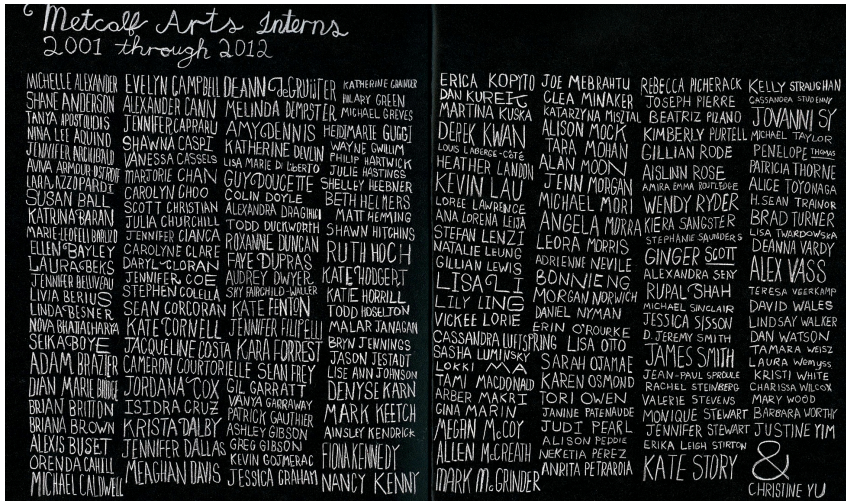 Metcalf Arts Interns
2001 through 2012
MICHELLE ALEXANDER
SHANE ANDERSON
TANYA APOSTOLIDIS
NINA LEE AQUINO
JENNIFER ARCHIBALD
AVIVA ARMOUR-OSTROFF
LARA AZZOPARDI
SUSAN BALL
KATRINA BARAN
MARIE-LEOFELI BARLIZO
ELLEN BAYLEY
LAURA BEKS
JENNIFER BELIVEAU
LIVIA BERIUS
LINDA BESNER
NOVA BHATTACHARYA
SEIKA BOYE
ADAM BRAZIER
DIAN MARIE BRIDGE
BRIAN BRITTON
BRIANA BROWN
ALEXIS BUSET
ORENDA CAHILL
MICHAEL CALDWELL
EVELYN CAMPBELL
ALEXANDER CANN
JENNIFER CAPRARU
SHAWNA CASPI
VANESSA CASSELS
MARJORIE CHAN
CAROLYN CHOO
SCOTT CHRISTIAN
JULIA CHURCHILL
JENNIFER CIANCA
CAROLYNE CLARE
DARYL CLORAN
JENNIFER COE
STEPHEN COLELLA
SEAN CORCORAN
KATE CORNELL
JACQUELINE COSTA
CAMERON COURTORIELLE
JORDANA COX
ISIDRA CRUZ
KRISTA DALBY
JENNIFER DALLAS
MEAGHAN DAVIS
DEANN deGRUIJTER
MELINDA DEMPSTER
AMY DENNIS
KATHERINE DEVLIN
LISA MARIE DILIBERTO
GUY DOUCETTE
COLIN DOYLE
ALEXANDRA DRAGINICI
TODD DUCKWORTH
ROXANNE DUNCAN
FAYE DUPRAS
AUDREY DWYER
SKY FAIRCHILD-WALLER
KATE FENTON
JENNIFER FILIPELLI
KARA FORREST
SEAN FREY
GIL GARRATT
VANYA GARRAWAY
PATRICK GAUTHIER
ASHLEY GIBSON
GREG GIBSON
KEVIN GOJMERAC
JESSICA GRAHAM
KATHERINE GRAINGER
HILARY GREEN
MICHAEL GREVES
HEIDIMARIE GUGGI
WAYNE GWILLIM
PHILIP HARTWICK
JULIE HASTINGS
SHELLEY HEEBNER
BETH HELMERS
MATT HEMMING
SHAWN HITCHINS
RUTH HOCH
KATE HODGERT
KATE HORRILL
TODD HOSELTON
MALAR JANAGAN
BRYN JENNINGS
JASON JESTADT
LISE ANN JOHNSON
DENYSE KARN
MARK KEETCH
AINSLEY KENDRICK
FIONA KENNEDY
NANCY KENNY
ERICA KOPYTO
DAN KUREK
MARTINA KUSKA
DEREK KWAN
LOUIS LABERGE-CÔTÉ
HEATHER LANDON
KEVIN LAU
LOREE LAWRENCE
ANA LORENA LEIJA
STEFAN LENZI
NATALIE LEUNG
GILLIAN LEWIS
LISA LI
LILY LING
VICKEE LORIE
CASSANDRA LUFTSPRING
SASHA LUMINSKY
LOKKI MA
TAMI MACDONALD
ARBER MAKRI
GINA MARIN
MEGAN McCOY
ALLEN McCREATH
MARK McGRINDER
JOE MEBRAHTU
CLEA MINAKER
KATARZYNA MISZTAL
ALISON MOCK
TARA MOHAN
ALAN MOON
JENN MORGAN
MICHAEL MORI
ANGELA MORRA
LEORA MORRIS
ADRIENNE NEVILE
BONNIE NG
MORGAN NORWICH
DANIEL NYMAN
ERIN O'ROURKE
LISA OTTO
SARAH OJAMAE
KAREN OSMOND
TORI OWEN
JANINE PATENAUDE
JUDI PEARL
ALISON PEDDIE
NEKETIA PEREZ
ANRITA PETRAROIA
REBECCA PICHERACK
JOSEPH PIERRE
BEATRIZ PIZANO
KIMBERLY PURTELL
GILLIAN RODE
AISLINN ROSE
AMIRA EMMA ROUTLEDGE
WENDY RYDER
KIERA SANGSTER
STEPHANIE SAUNDERS
GINGER SCOTT
ALEXANDRA SEAY
RUPAL SHAH
MICHAEL SINCLAIR
JESSICA SISSON
D. JEREMY SMITH
JAMES SMITH
JEAN-PAUL SPROULE
RACHEL STEINBERG
VALERIE STEVENS
MONIQUE STEWART
JENNIFER STEWART
ERIKA LEIGH STIRTON
KATE STORY
KELLY STRAUGHAN
CASSANDRA STUDENNY
JOVANNI SY
MICHAEL TAYLOR
PENELOPE THOMAS
PATRICIA THORNE
ALICE TOYONAGA
H. SEAN TRAINOR
BRAD TURNER
LISA TWARDOWSKA
DEANNA VARDY
ALEX VASS
TERESA VEERKAMP
DAVID WALES
LINDSAY WALKER
DAN WATSON
TAMARA WEISZ
LAURA WEMYSS
KRISTI WHITE
CHARISSA WILCOX
MARY WOOD
BARBARA WORTHY
JUSTINE YIM
&
CHRISTINE YU